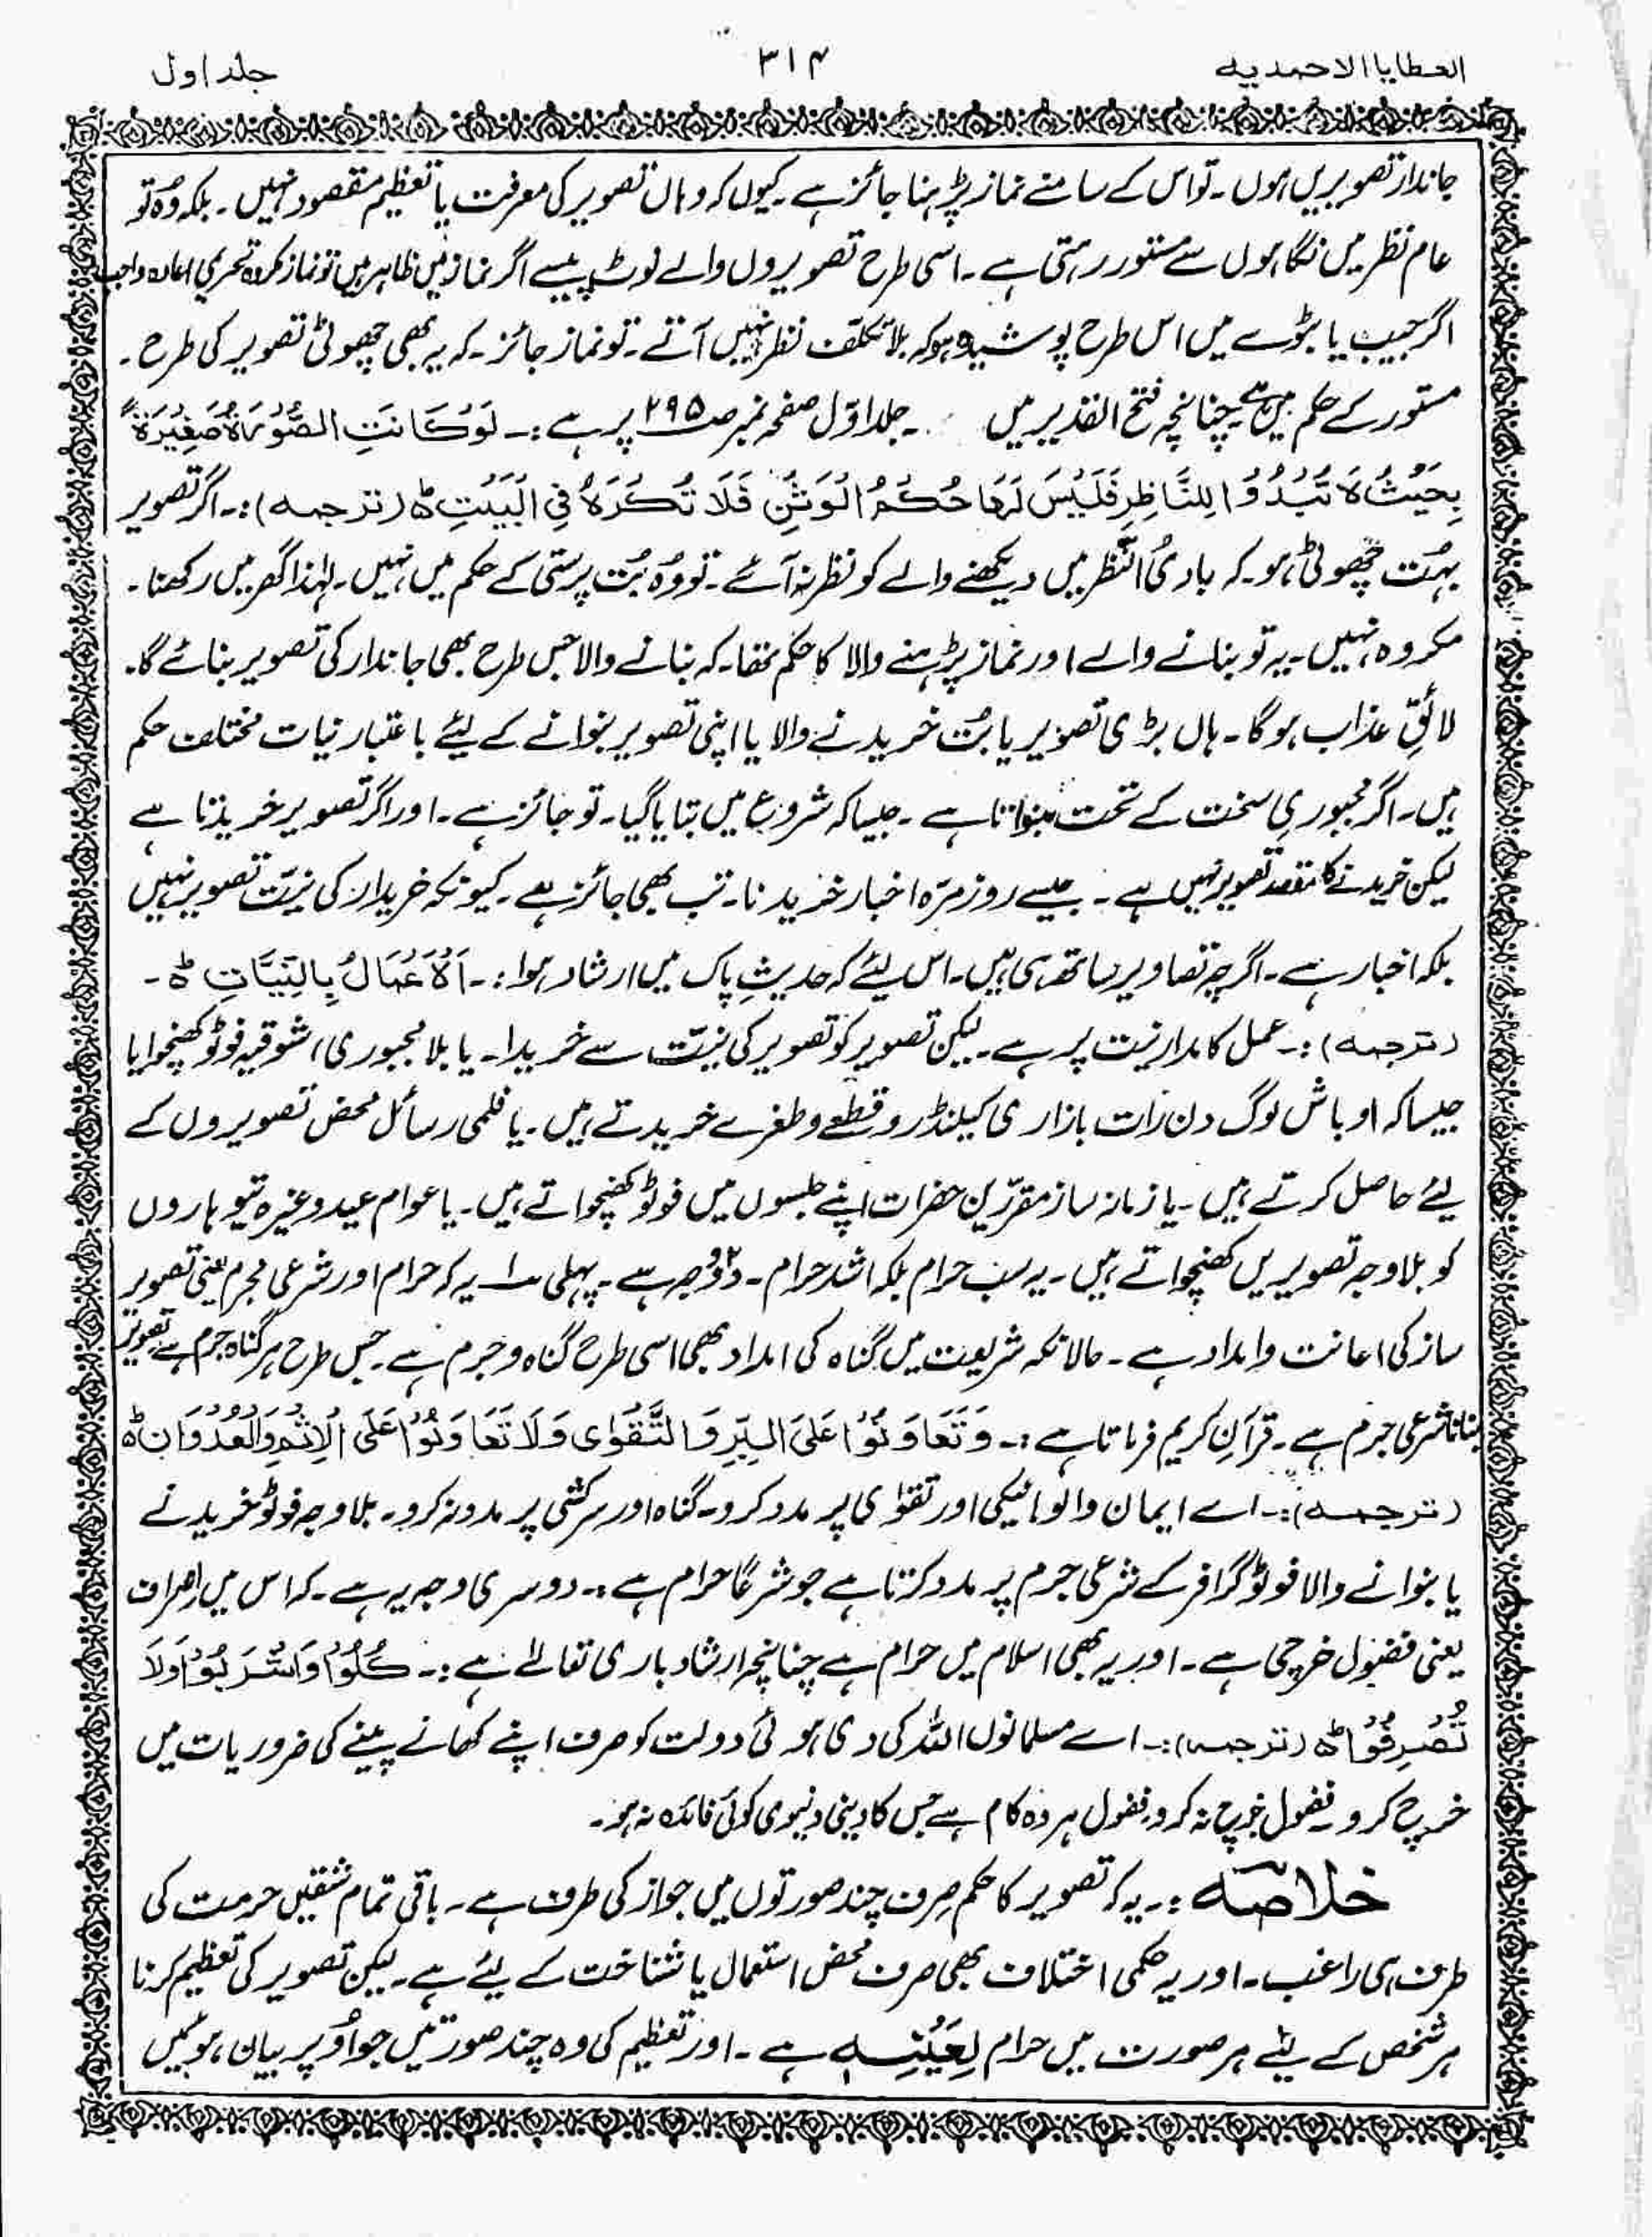 العطایا الاحمدیہ
۳۱۴
جلد اول
جاندار تصویریں ہوں۔ تو اس کے سامنے نماز پڑہنا جائز ہے۔ کیوں کہ وہاں تصویر کی معرفت یا تعظیم مقصود نہیں۔ بلکہ وُہ تو
عام نظر میں نگاہوں سے مستور رہتی ہے۔ اسی طرح تصویروں والے نوٹ پیسے اگر نماز میں ظاہر ہیں تو نماز مکروہ تحریمی اعادہ واجب
اگر جیب یا بٹوے میں اس طرح پوشیدہ ہو کہ بلا تکلف نظر نہیں آتے۔ تو نماز جائز۔ کہ یہ بھی چھوٹی تصویر کی طرح۔
مستور کے حکم میں ہے۔ چنانچہ فتح القدیر میں ۔ جلد اوّل صفحہ نمبر ص۲۹۵ پر ہے :۔ لَوْ کَانَتِ الصُّوْرَۃُ صَغِیْرَۃً
بِحَیْثُ لَا تَبْدُوْا لِلنَّاظِرِ فَلَیْسَ لَھَا حُکْمُ الْوَثَنِ فَلَا تُکْرَہُ فِی الْبَیْتِ ط (ترجمہ) :۔ اگر تصویر
بہُت چھوٹی ہو۔ کہ بادیُ النَّظر میں دیکھنے والے کو نظر نہ آئے۔ تو وُہ بُت پرستی کے حکم میں نہیں۔ لہٰذا گھر میں رکھنا۔
مکروہ نہیں۔ یہ تو بنانے والے اور نماز پڑہنے والا کا حکم تھا۔ کہ بنانے والا جس طرح بھی جاندار کی تصویر بنائے گا۔
لائقِ عذاب ہوگا۔ ہاں بڑی تصویر یا بُت خریدنے والا یا اپنی تصویر بنوانے کے لیئے باعتبار نیات مختلف حکم
ہیں۔ اگر مجبوریِ سخت کے تحت بنواتا ہے۔ جیسا کہ شروع میں بتایا گیا۔ تو جائز ہے۔ اور اگر تصویر خریدتا ہے
لیکن خریدنے کا مقصد تصویر نہیں ہے۔ جیسے روز مرّہ اخبار خریدنا۔ تب بھی جائز ہے۔ کیونکہ خریدار کی نیّت تصویر نہیں
بلکہ اخبار ہے۔ اگرچہ تصاویر ساتھ ہی ہیں۔ اس لیئے کہ حدیثِ پاک میں ارشاد ہوا :۔ اَلْاَعْمَالُ بِالنِّیَّاتِ ط ۔
(ترجمہ) :۔ عمل کا مدار نیت پر ہے۔ لیکن تصویر کو تصویر کی نیّت سے خریدا۔ یا بلا مجبوری، شوقیہ فوٹو کھنچوایا
جیسا کہ اوباش لوگ دن رات بازاری کیلنڈر و قطعے و طغرے خریدتے ہیں۔ یا فلمی رسائل محض تصویروں کے
لیئے حاصل کرتے ہیں۔ یا زمانہ ساز مقرّرین حضرات اپنے جلسوں میں فوٹو کھنچواتے ہیں۔ یا عوام عید وغیرہ تیوہاروں
کو بلا وجہ تصویریں کھنچواتے ہیں۔ یہ سب حرام بلکہ اشد حرام۔ دو۲ وجہ سے۔ پہلی ۱ یہ کہ حرام اور شرعی مجرم یعنی تصویر
ساز کی اعانت و امداد ہے۔ حالانکہ شریعت میں گناہ کی امداد بھی اسی طرح گناہ و جرم ہے۔ جس طرح ہر گناہ جرم ہے تصویر
بنانا شرعی جرم ہے۔ قرآنِ کریم فرماتا ہے :۔ وَ تَعَاوَنُوْا عَلَی الْبِرِّ وَالتَّقْوٰی وَلَا تَعَاوَنُوْا عَلَی الْاِثْمِ وَالْعُدْوَانِ ط
(ترجمہ) :۔ اے ایمان والو! نیکی اور تقوٰی پر مدد کرو۔ گناہ اور سرکشی پر مدد نہ کرو۔ بلا وجہ فوٹو خریدنے
یا بنوانے والا فوٹو گرافر کے شرعی جرم پر مدد کرتا ہے جو شرعًا حرام ہے :۔ دوسری وجہ یہ ہے۔ کہ اس میں اصراف
یعنی فضول خرچی ہے۔ اور یہ بھی اسلام میں حرام ہے چنانچہ ارشاد باری تعالٰے ہے :۔ کُلُوْا وَاشْرَبُوْا وَلَا
تُصْرِفُوْا ط (ترجمہ) :۔ اے مسلمانوں اللہ کی دی ہوئی دولت کو صرف اپنے کھانے پینے کی ضروریات میں
خرچ کرو۔ فضول خرچ نہ کرو۔ فضول ہر وہ کام ہے جس کا دینی دنیوی کوئی فائدہ نہ ہو۔
خلاصہ :۔ یہ کہ تصویر کا حکم صرف چند صورتوں میں جواز کی طرف ہے۔ باقی تمام شقیں حرمت کی
طرف ہی راغب۔ اور یہ حکمی اختلاف بھی صرف محض استعمال یا شناخت کے لیئے ہے۔ لیکن تصویر کی تعظیم کرنا
ہر شخص کے لیئے ہر صورت میں حرام لِعَیْنِہٖ ہے۔ اور تعظیم کی وہ چند صورتیں جو اُوپر بیان ہوئیں